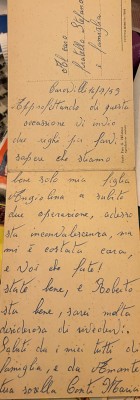 Al caro
fratello Stefano
e famiglia
12/9/49
Approfittando di questa
occasione ti invio
due righe per farvi
sapere che stiamo
bene solo mia figlia
Angiolina a subito
due operazione, adesso
sta inconvalescenza, ma
mi è costata cara,
e voi che fate!
state bene, e Roberto
sta bene, sarei molto
desiderosa di rivedervi.
Saluti da i miei tutti di
famiglia, e da
tua sorella Conti Maria